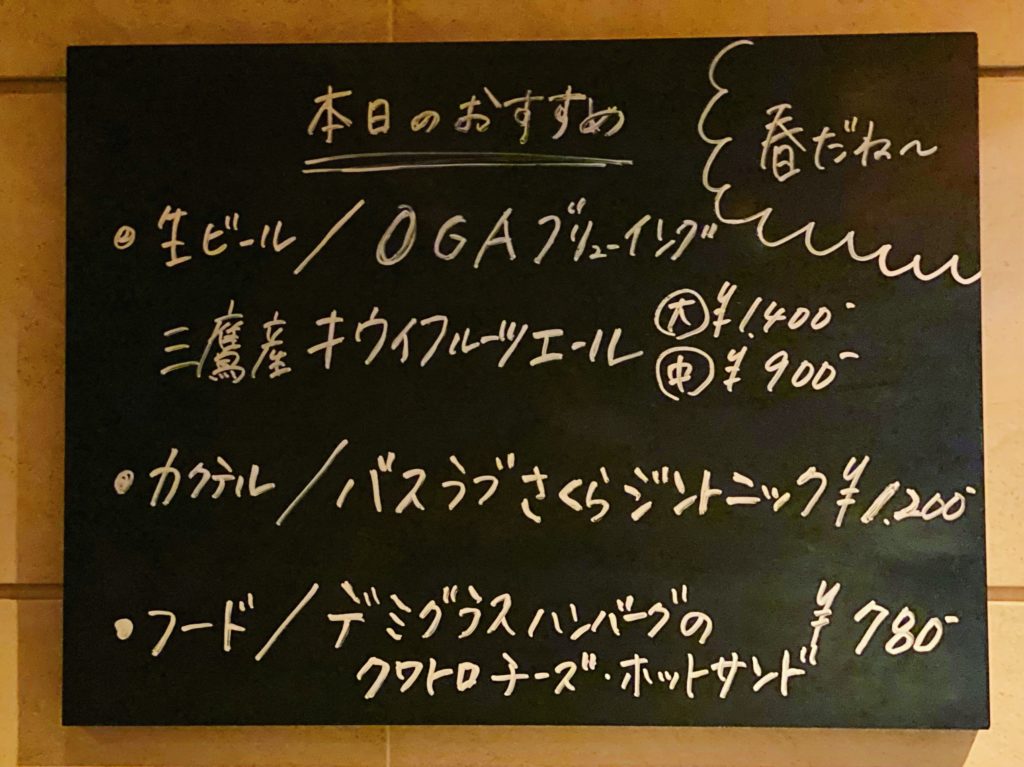 本日のおすすめ
春だね〜
• 生ビール / OGAブリューイング
三鷹産 キウイフルーツエール
大 ¥1,400-
中 ¥900-
• カクテル / バスラブさくらジントニック ¥1,200-
• フード / デミグラスハンバーグの ¥780-
クワトロチーズ・ホットサンド